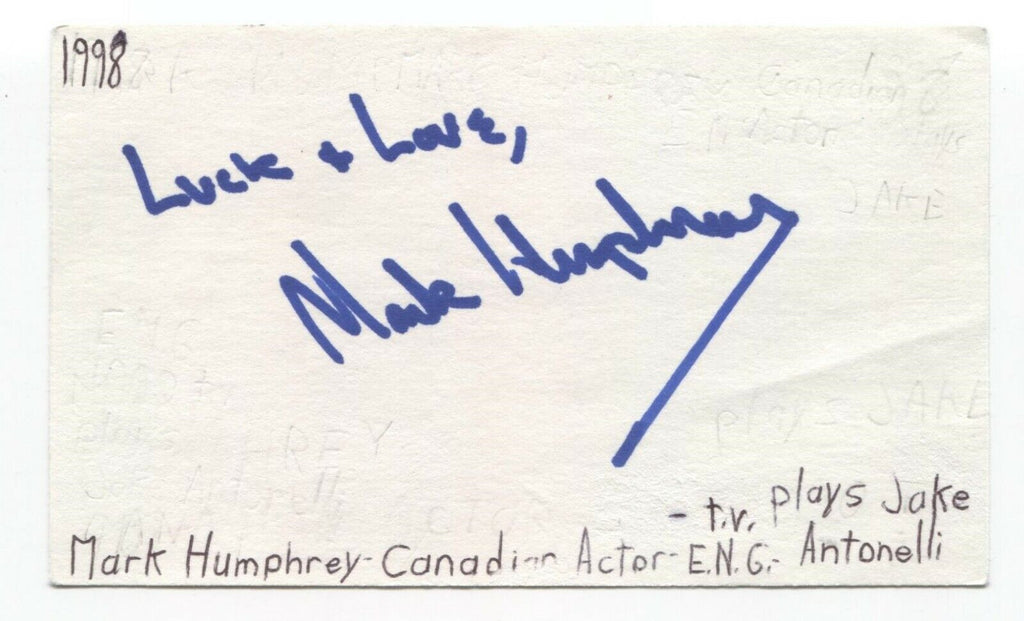 1998
Luck + Love,
Mark Humphrey
- t.v. plays Jake
Mark Humphrey - Canadian Actor - E.N.G. - Antonelli